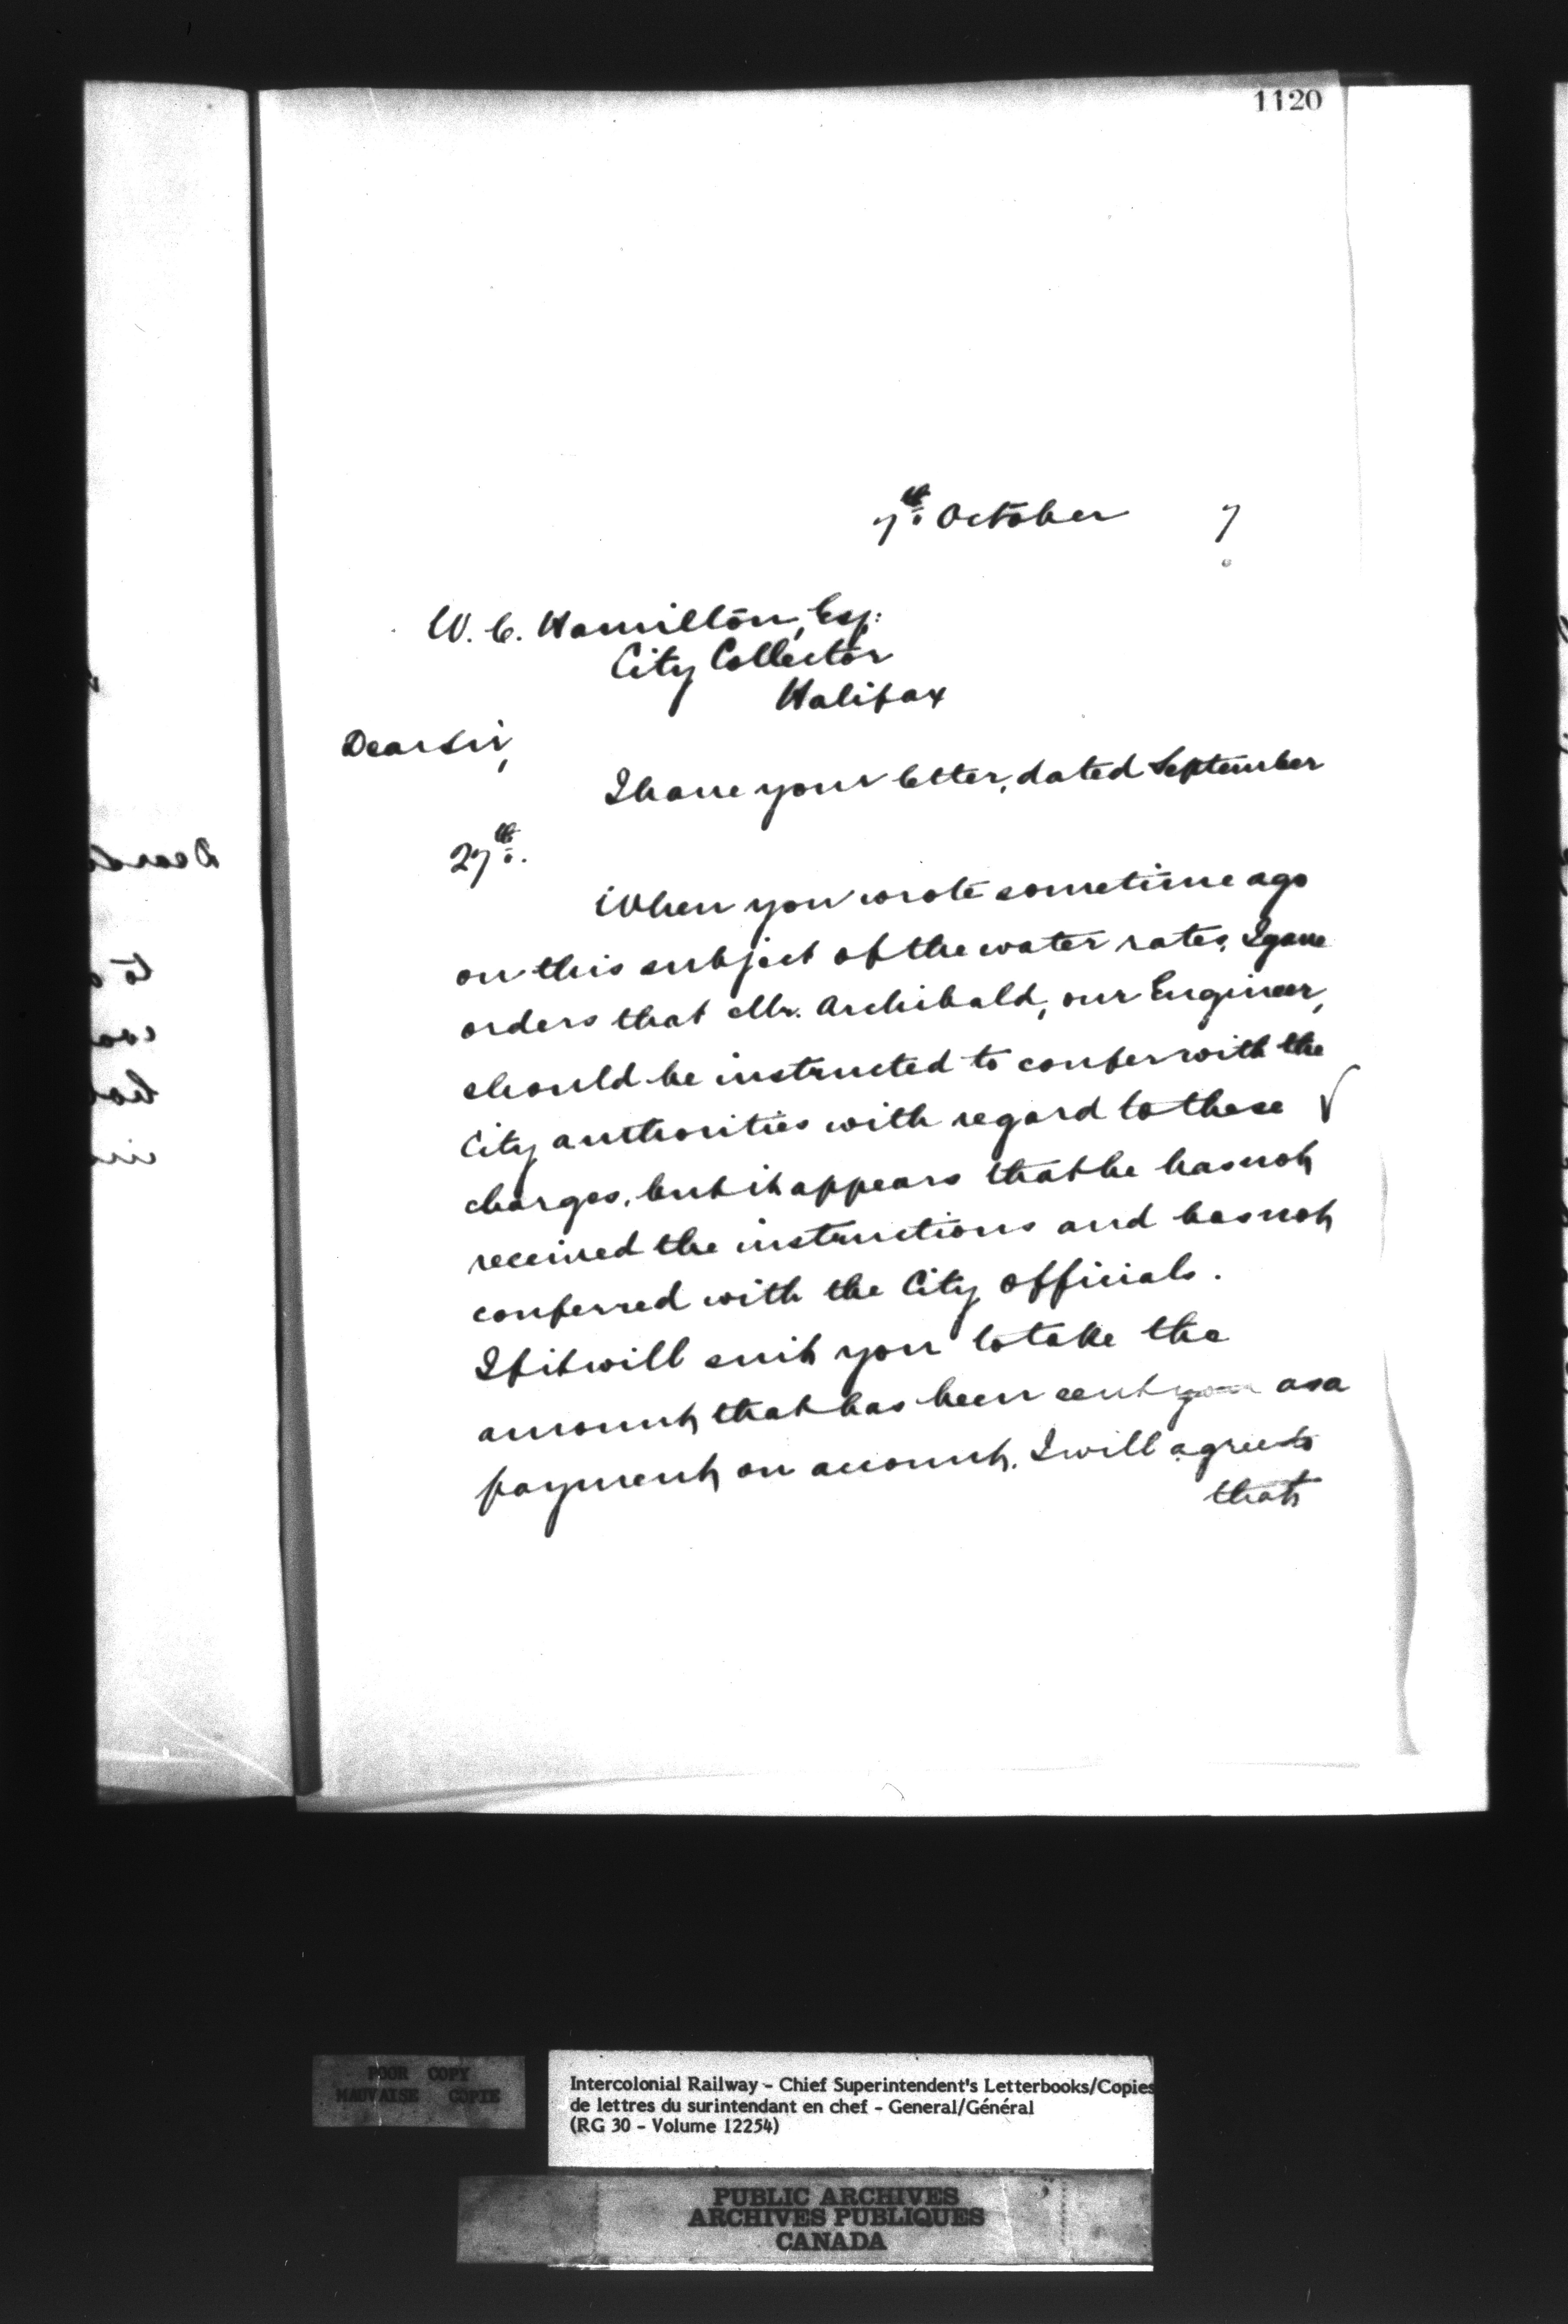 1120
7th October 7
W. C. Hamilton, Esq:
City Collector
Halifax
Dear Sir,
I have your letter, dated September
27th.
When you wrote sometime ago
on this subject of the water rates, I gave
orders that Mr. Archibald, our Engineer,
should be instructed to confer with the
City authorities with regard to these
charges, but it appears that he has not
received the instructions and has not
conferred with the City officials.
If it will suit you to take the
amount that has been sent you as a
payment on account, I will agree to
that
POOR COPY
MAUVAISE COPIE
Intercolonial Railway - Chief Superintendent's Letterbooks/Copies
de lettres du surintendant en chef - General/Général
(RG 30 - Volume 12254)
PUBLIC ARCHIVES
ARCHIVES PUBLIQUES
CANADA